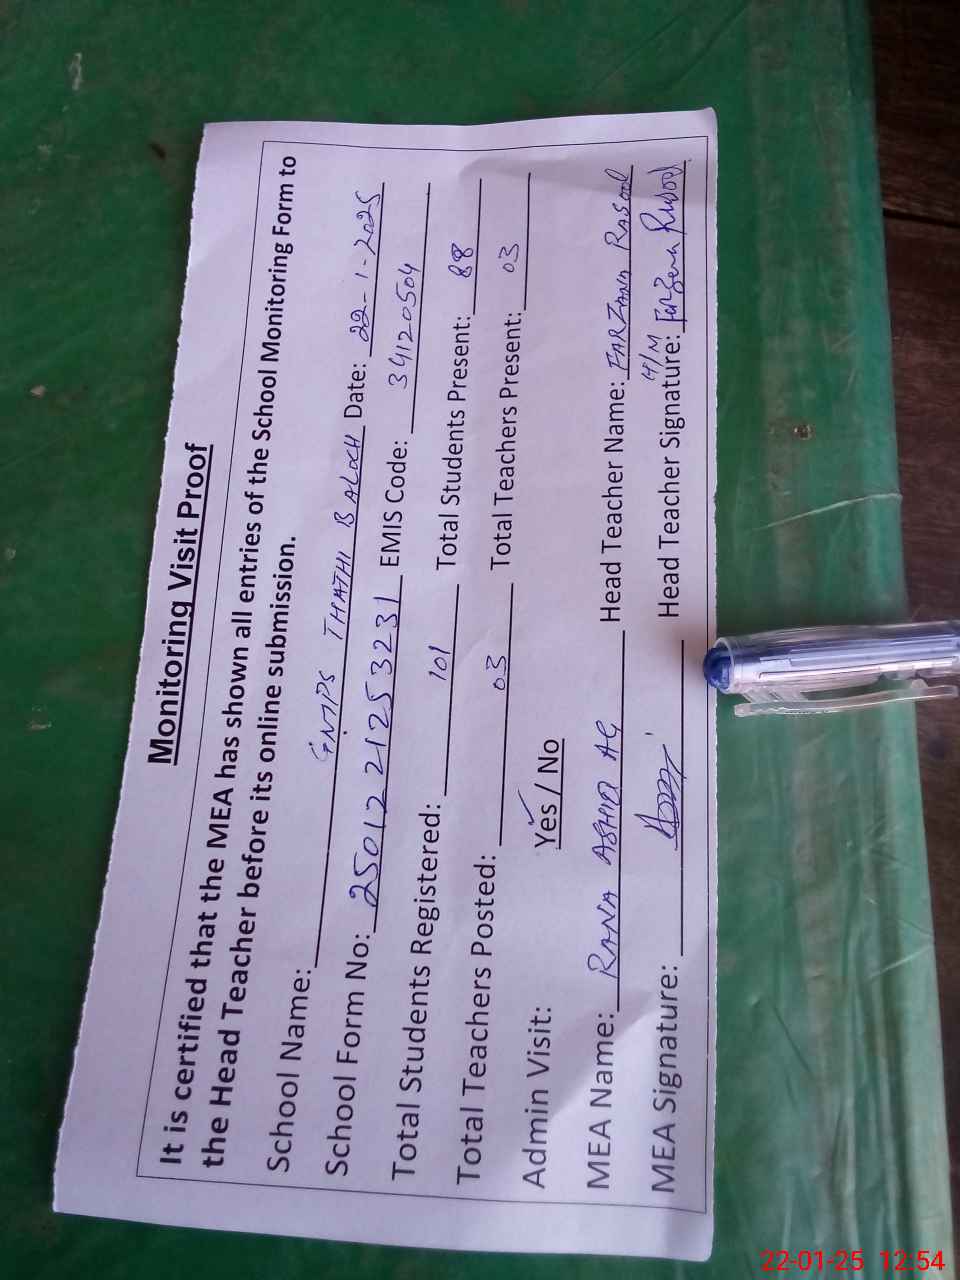 Monitoring Visit Proof
It is certified that the MEA has shown all entries of the School Monitoring Form to
the Head Teacher before its online submission.
School Name: GMPS THATHI BALOCH Date: 22-1-2025
School Form No: 2501221253231 EMIS Code: 34120504
Total Students Registered: 101 Total Students Present: 88
Total Teachers Posted: 03 Total Teachers Present: 03
Admin Visit: Yes / No
MEA Name: RANA ASHIQ Head Teacher Name: FARZANA RASOOL
H/M
MEA Signature: Head Teacher Signature: Farzana Rasool
22-01-25 12:54